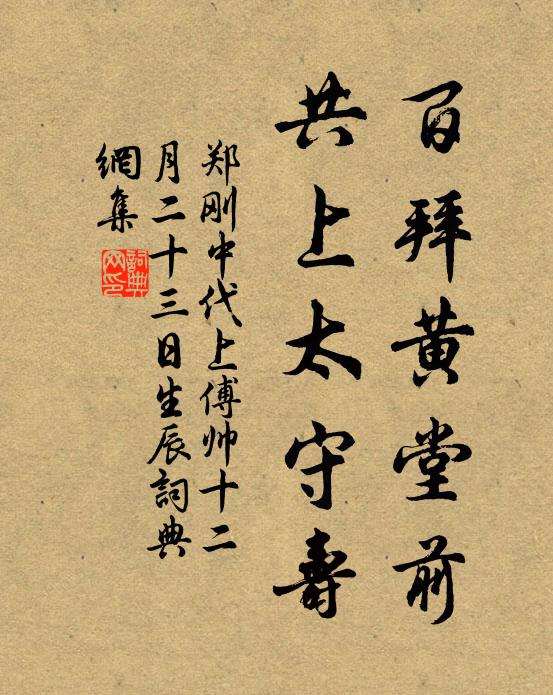 百拜黄堂前
共上太守壽
郑刚中代上傅帅十二
月二十三日生辰詞典
網集
詞典
网印